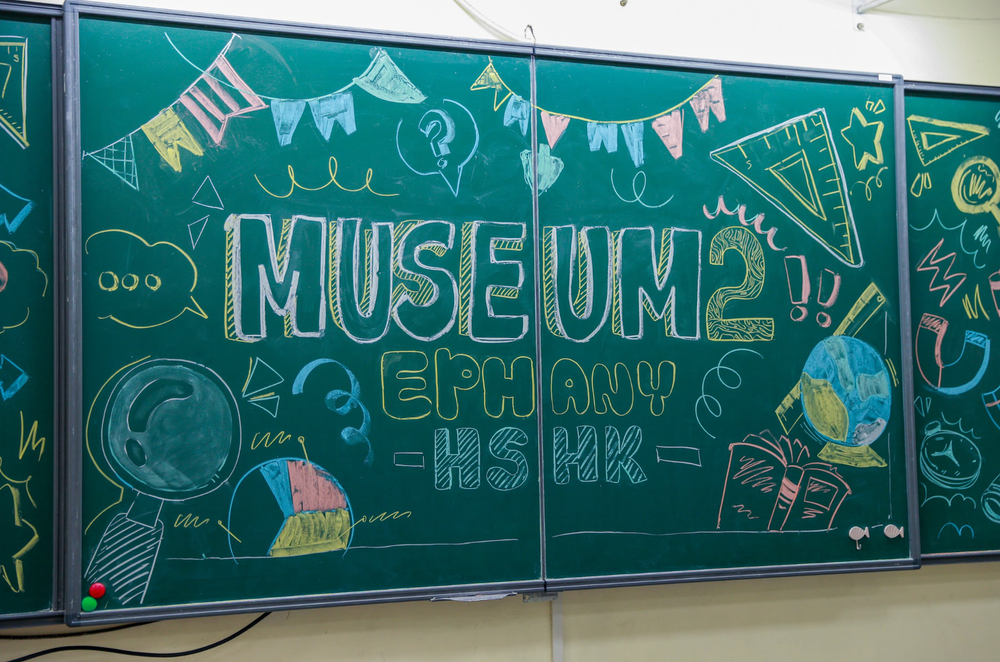 ?
MUSEUM 2
!!
EPHANY
- HS HK -